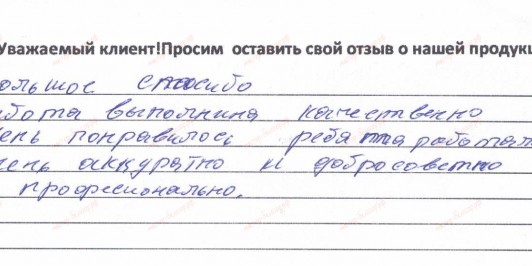 Уважаемый клиент!Просим оставить свой отзыв о нашей продукц
ольшое спасибо
абота выполнина качественно
чень понравилось ребята работал
чень аккуратно и добросовестно
профессионально.